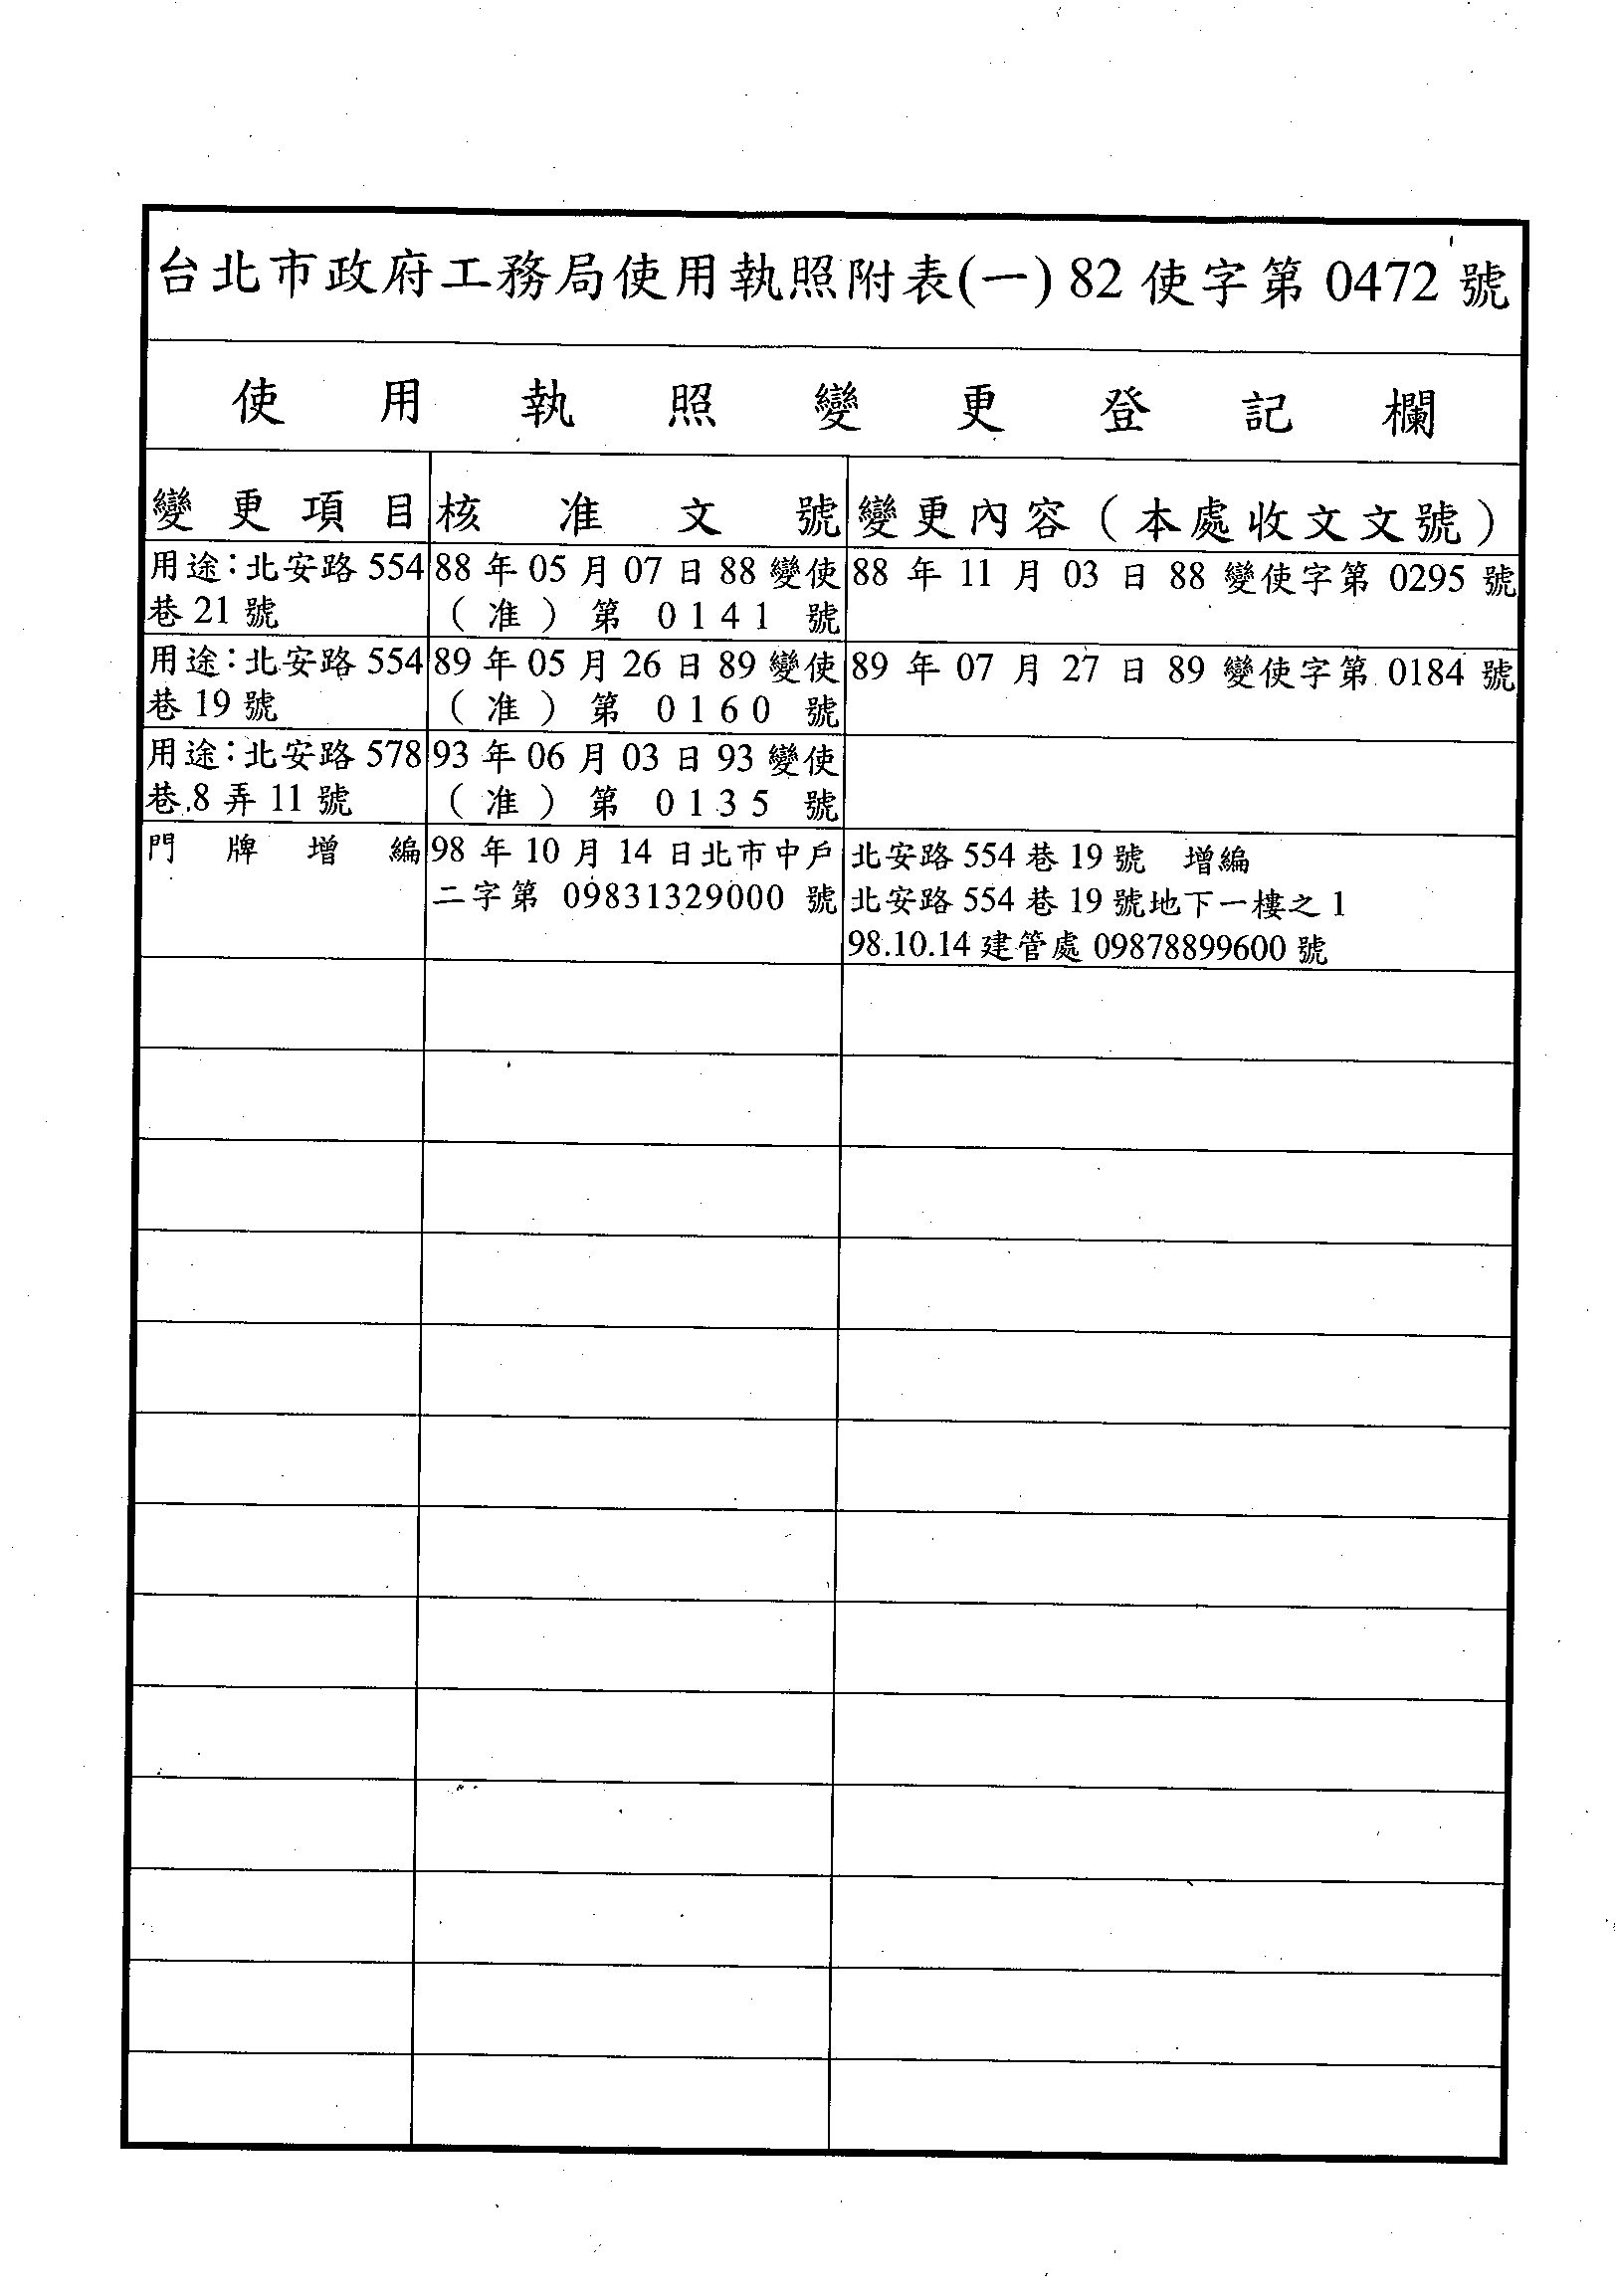 台北市政府工務局使用執照附表(一) 82 使字第 0472 號
使用執照變更登記欄
變更項目 核准文號 變更內容（本處收文文號）
用途：北安路 554 88 年 05 月 07 日 88 變使 88 年 11 月 03 日 88 變使字第 0295 號
巷 21 號 （准）第 0141 號
用途：北安路 554 89 年 05 月 26 日 89 變使 89 年 07 月 27 日 89 變使字第 0184 號
巷 19 號 （准）第 0160 號
用途：北安路 578 93 年 06 月 03 日 93 變使
巷 8 弄 11 號 （准）第 0135 號
門牌增編 98 年 10 月 14 日北市中戶 北安路 554 巷 19 號 增編
二字第 09831329000 號 北安路 554 巷 19 號地下一樓之 1
98.10.14 建管處 09878899600 號